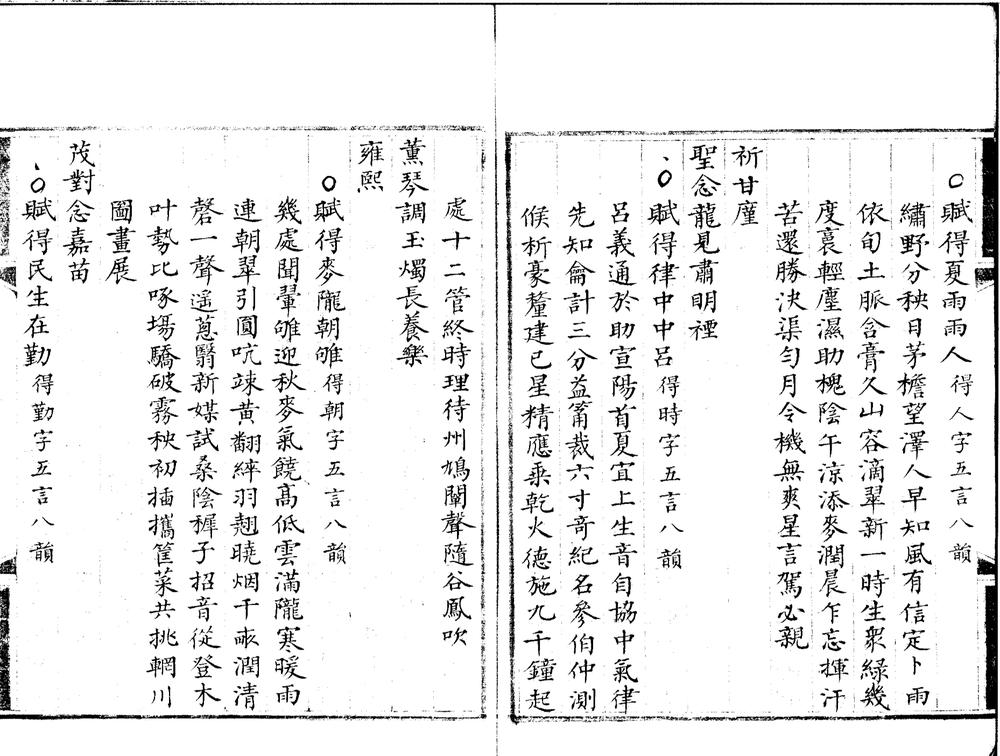 ○賦得夏雨雨人得人字五言八韻
繡野分秧日茅檐望澤人早知風有信定卜雨
依旬土脈含膏久山容滴翠新一時生衆緑幾
度裛輕塵濕助槐陰午涼添麥潤晨乍忘揮汗
苦還勝決渠勻月令機無爽星言駕必親
祈甘廑
聖念龍見肅明禋
○賦得律中中呂得時字五言八韻
呂義通於助宣陽首夏宜上生音自協中氣律
先知龠計三分益筩裁六寸奇紀名參伯仲測
候析豪釐建巳星精應乘乾火德施九千鐘起
處十二管終時理待州鳩闡聲隨谷鳳吹
薰琴調玉燭長養樂
雍熙
○賦得麥隴朝雊得朝字五言八韻
幾處聞翬雊迎秋麥氣饒高低雲滿隴寒暖雨
連朝翠引圓吭竦黃翻綷羽翹曉烟千畝潤清
磬一聲遙蔥翳新媒試桑陰穉子招音從登木
叶勢比啄場驕破霧秧初插攜筐菜共挑輞川
圖畫展
茂對念嘉苗
○賦得民生在勤得勤字五言八韻